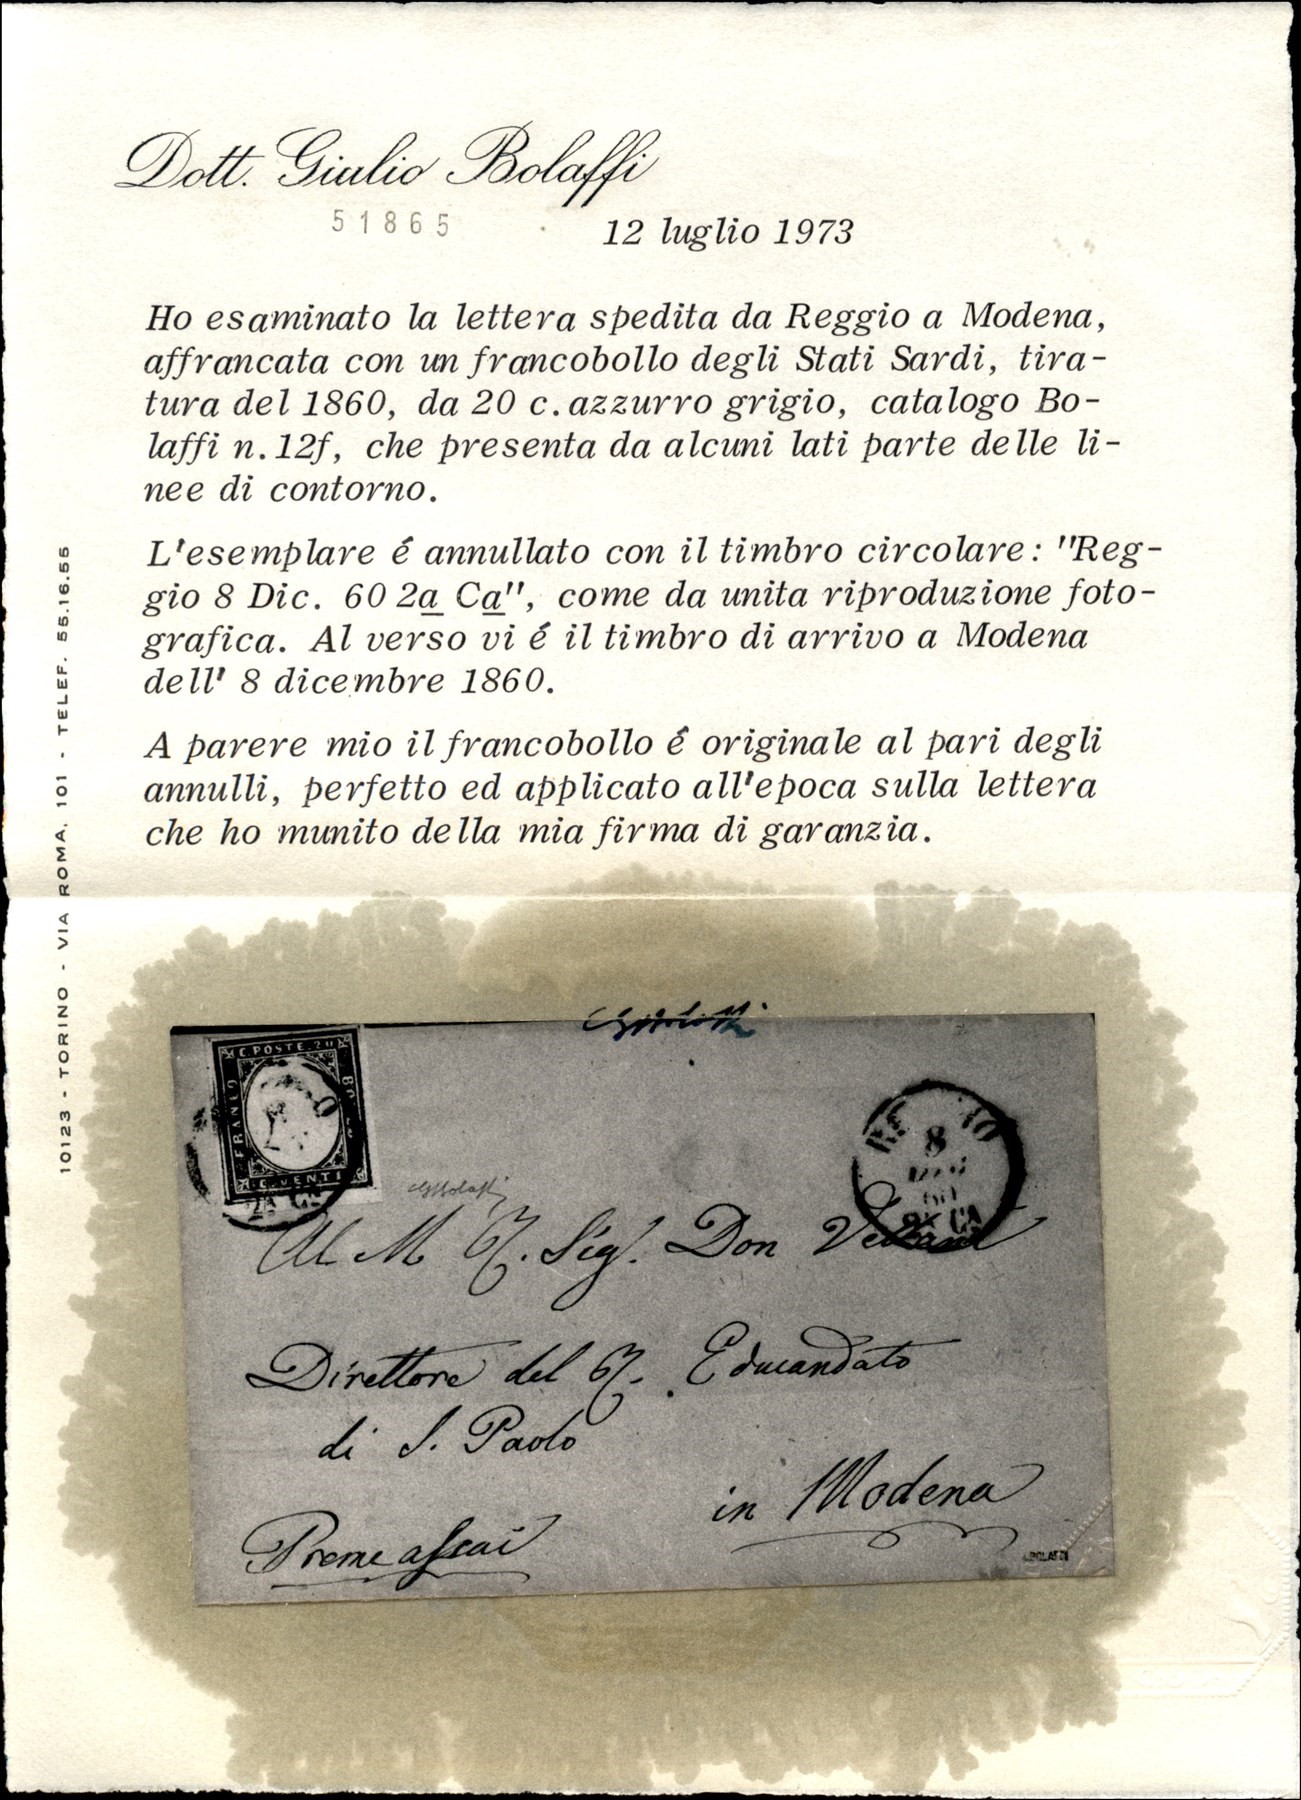 Dott. Giulio Bolaffi
51865
12 luglio 1973
Ho esaminato la lettera spedita da Reggio a Modena,
affrancata con un francobollo degli Stati Sardi, tira-
tura del 1860, da 20 c. azzurro grigio, catalogo Bo-
laffi n. 12f, che presenta da alcuni lati parte delle li-
nee di contorno.
L'esemplare é annullato con il timbro circolare: "Reg-
gio 8 Dic. 60 2a Ca", come da unita riproduzione foto-
grafica. Al verso vi é il timbro di arrivo a Modena
dell' 8 dicembre 1860.
A parere mio il francobollo é originale al pari degli
annulli, perfetto ed applicato all'epoca sulla lettera
che ho munito della mia firma di garanzia.
10123 - TORINO - VIA ROMA, 101 - TELEF. 55.16.55
C. POSTE. 20
FRANCO
C. VENTI
8
Al M. Sig. Don
Direttore del Educandato
di S. Paolo
in Modena
Preme assai